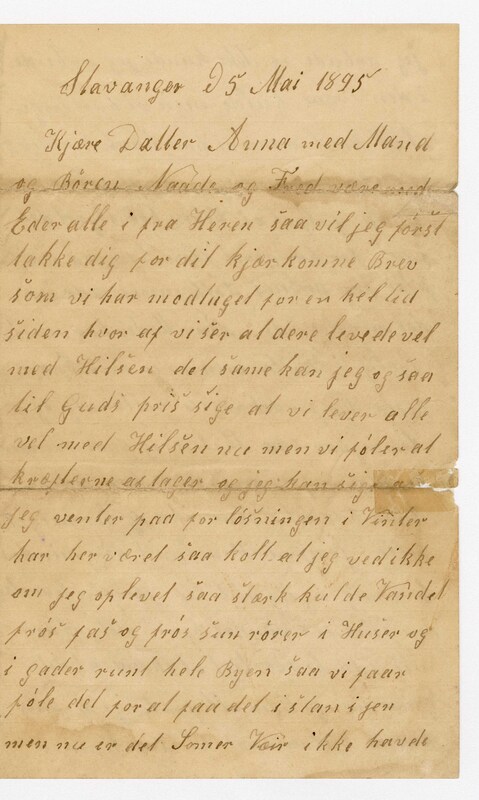 Stavanger D 5 Mai 1895
Kjære Datter Anna med Mand
og Bören Naade og Fred være med
Eder alle i fra Heren saa vil jeg först
takke dig for dit kjærkomne Brev
som vi har modtaget for en hel tid
siden hvor af vi ser at dere levede vel
med Hilsen det same kan jeg og saa
til Guds pris sige at vi lever alle
vel med Hilsen nu men vi föler at
kræfterne af tager og jeg kan sige
jeg venter paa for lösningen i Vinter
har her været saa kolt at jeg ved ikke
om jeg oplevet saa stærk kulde Vandet
frös fas og frös sun rörer i Huser og
i gader runt hele Byen saa vi faar
föle det for at faa det i stan i jen
men nu er det Somer Veir ikke havde